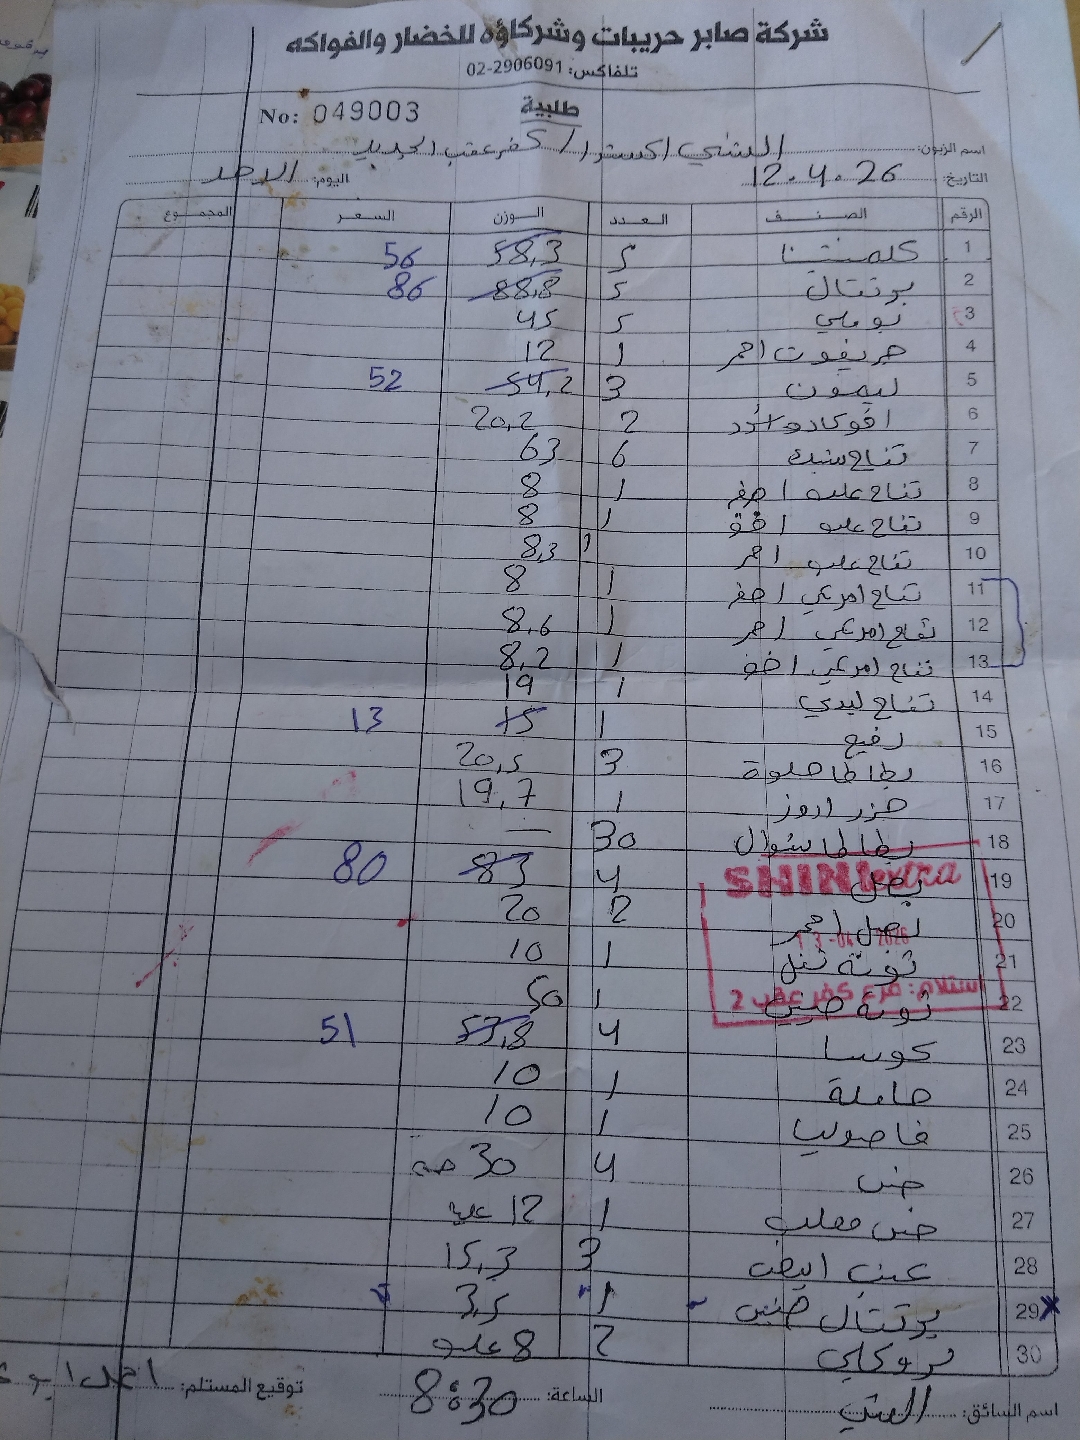 شركة صابر حريبات وشركاؤه للخضار والفواكه
تلفاكس: 02-2906091
طلبية
No: 049003
اسم الزبون: الشني اكسترا / كفر عقب الجديد
التاريخ: 12.4.26 اليوم: الاحد
الرقم الصنف العدد الوزن السعر المجموع
1 كلمنتينا 5 58,3 56
2 برتقال 5 88,8 86
3 بوملي 5 45
4 جريفوت احمر 1 12
5 ليمون 3 54,2 52
6 افوكادو 2 20,2
7 تفاح سنبك 6 63
8 تفاح علب اصفر 1 8
9 تفاح علب اخضر 1 8
10 تفاح علب احمر 1 8,3
11 تفاح امريكي اصفر 1 8
12 تفاح امريكي احمر 1 8,6
13 تفاح امريكي اخضر 1 8,2
14 تفاح ليدي 1 19
15 رفيع 1 15 13
16 بطاطا حلوة 3 20,5
17 جزر اروز 1 19,7
18 بطاطا شوال 30 —
19 بصل 4 83 80
20 بصل احمر 2 20
21 تومة تنل 1 10
22 تومة صيني 1 50
23 كوسا 4 53,8 51
24 حاملة 1 10
25 فاصوليا 1 10
26 خس 4 30 حبه
27 خس معلب 1 12 علبه
28 عنب ابيض 3 15,3
29 برتقال صيني 1 3,5
30 بروكلي 2 8 علبه
SHINI extra
13-04-2026
استلام: فرع كفر عقب 2
اسم السائق: الساعة: 8:30 توقيع المستلم: